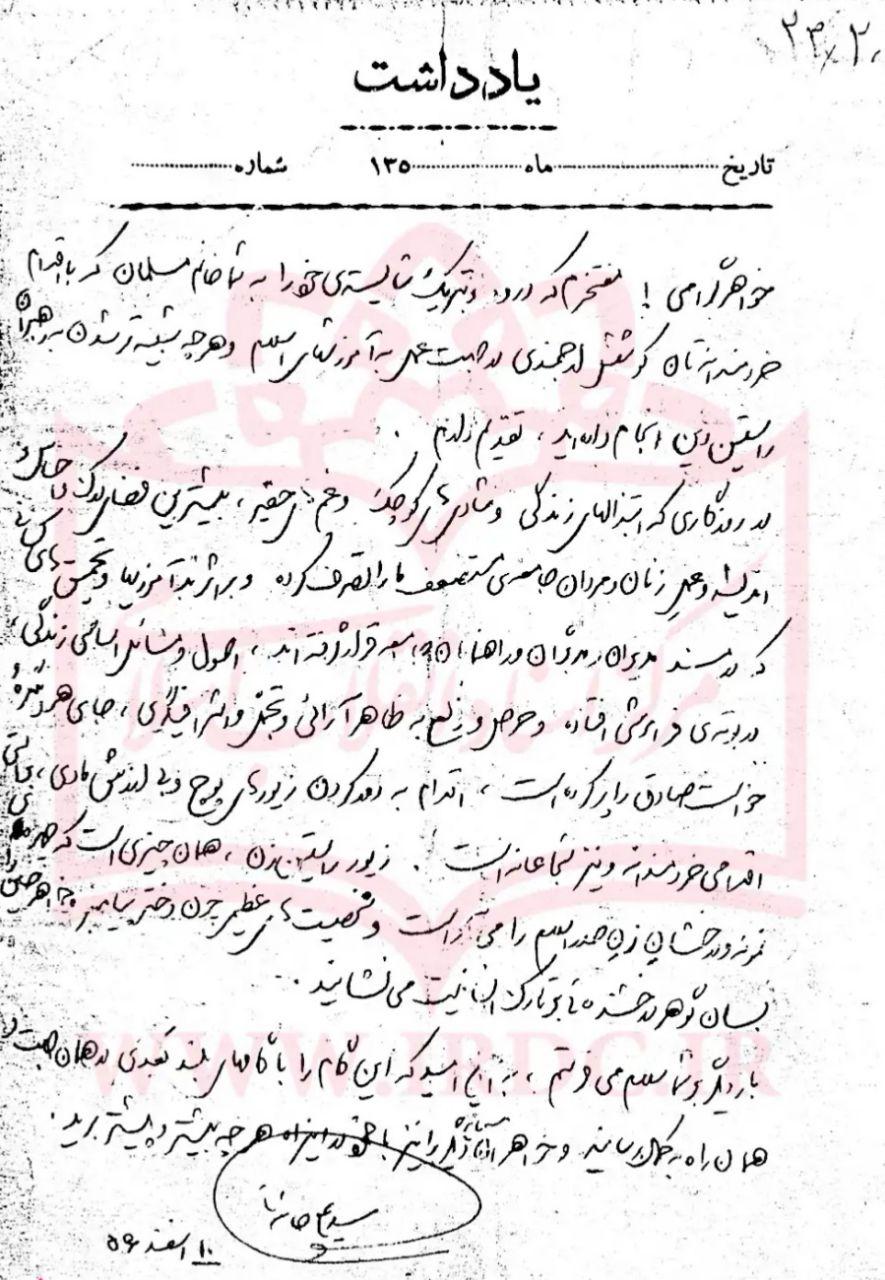 ۲۳/۲۰
یادداشت
تاریخ ماه ۱۳۵ شماره
خواهر گرامی ! مفتخرم که درود و تبریک شایسته‌ی خود را به شما خانم مسلمان که با اقدام
خردمندانه‌تان کوشش ارجمندی در جهت عمل به آموزشهای اسلام و هر چه شبیه‌تر شدن به رهبران
راستین دین انجام داده‌اید ، تقدیم دارم .
در روزگاری که ابتذالهای زندگی و شادی‌های کوچک و غم‌های حقیر ، بیشترین فضای
اندیشه و عمل زنان و مردان جامعه‌ی مستضعف ما را تصرف کرده و بر اثر بدآموزیها و تحمیق‌های
که در مسند مدیران و مدبران و راهنمایان جامعه قرار گرفته‌اند ، اصول و مسائل اساسی زندگی ،
در بوته‌ی فراموشی افتاده و حرص و ولع به ظاهرآرائی و تجمل و اشرافیگری ، جای هر
خواست صادق را پر کرده است ، اقدام به رد کردن زیورهای پوچ و بی ارزش مادی ،
اقدامی خردمندانه و نیز شجاعانه است . زیور راستین زن ، همان چیزی است که چهره‌
نمونه و درخشان زن صدر اسلام را می‌آراست و شخصیت‌های عظیمی چون دختر پیامبر و خواهر حسین را
بسان گوهر درخشنده‌ای بر تارک انسانیت می‌نشانید .
بار دیگر بر شما سلام می‌فرستم ، به این امید که این گام را با گامهای بلند بعدی در همان جهت و
همان راه به کمال رسانید و خواهران دیگر را نیز با خود در این راه هر چه بیشتر و پیشتر برید .
سید علی خامنه‌ای
۱۰ اسفند ۵۶
مرکز اسناد انقلاب اسلامی
WWW.IRDC.IR